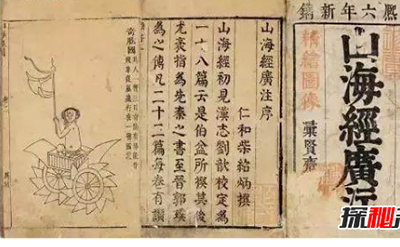 六年新鐫
精繪圖像
山海經廣
彙賢齋
山海經廣注序
仁和柴紹炳撰
山海經初見漢志劉歆校定為
一十八篇云是伯益所撰其後
尤袤指為先秦之書至晉郭璞
為之傳凡二十三篇每卷有讚
奇肱國
探秘